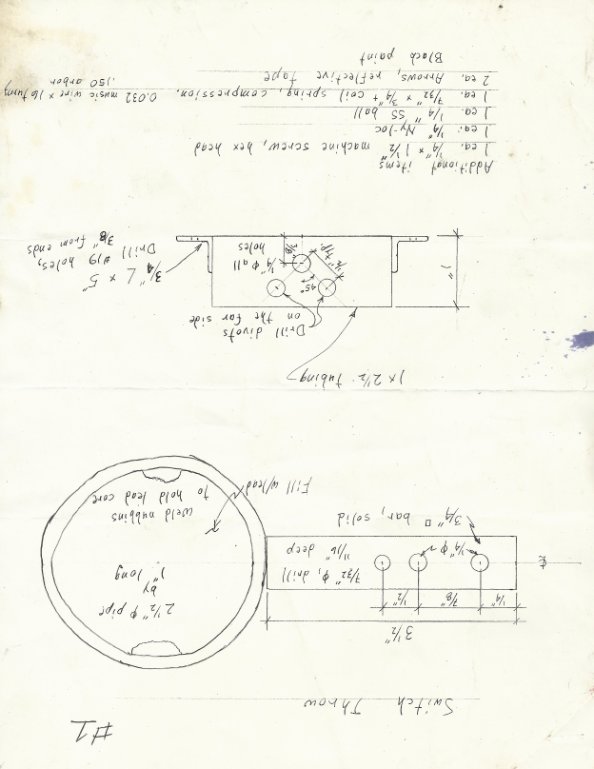 #1
Switch Throw
3 1/2"
1/4"
7/8"
1/2"
2 1/2" ϕ pipe
by
1" long
7/32" ϕ, drill
11/16" deep
1/4" ϕ
℄
3/4" □ bar, solid
weld nubbins
to hold lead core
Fill w/lead
1 x 2 1/2" tubing
Drill divots
on the far side
45°
1/2" typ
1"
1/4" ϕ all
holes
3/8"
3/4" L x 5"
Drill #19 holes,
3/8" from ends
Additional items
1 ea. 1/4" x 1 1/2" machine screw, hex head
1 ea. 1/4" Ny-loc
1 ea. 1/4" SS ball
1 ea. 7/32" x 3/4" coil spring, compression. 0.032 music wire x 16 turn
.150 arbor
2 ea. Arrows, reflective tape
Black paint